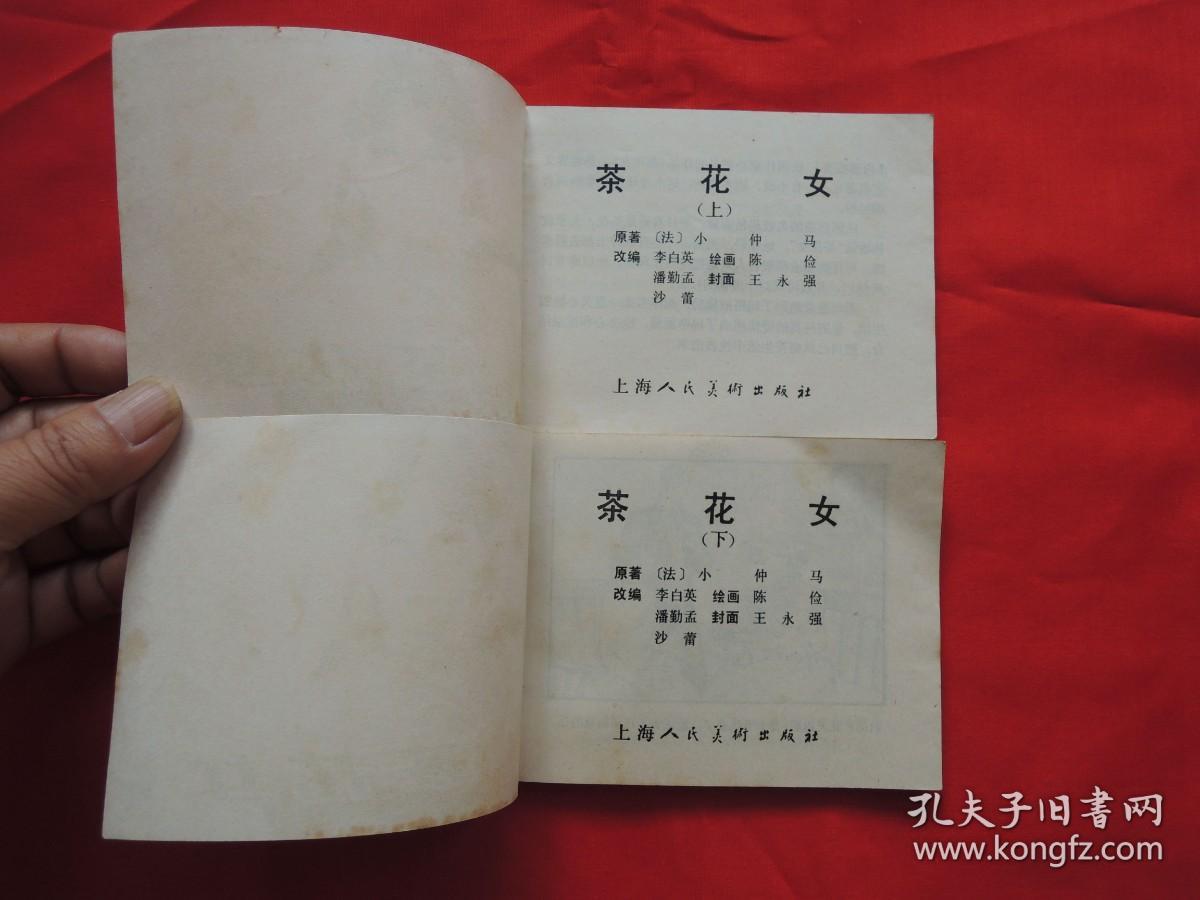 茶花女
（上）
原著 〔法〕小仲马
改编 李白英 绘画 陈俭
潘勤孟 封面 王永强
沙蕾
上海人民美術出版社
茶花女
（下）
原著 〔法〕小仲马
改编 李白英 绘画 陈俭
潘勤孟 封面 王永强
沙蕾
上海人民美術出版社
孔夫子旧書网
www.kongfz.com